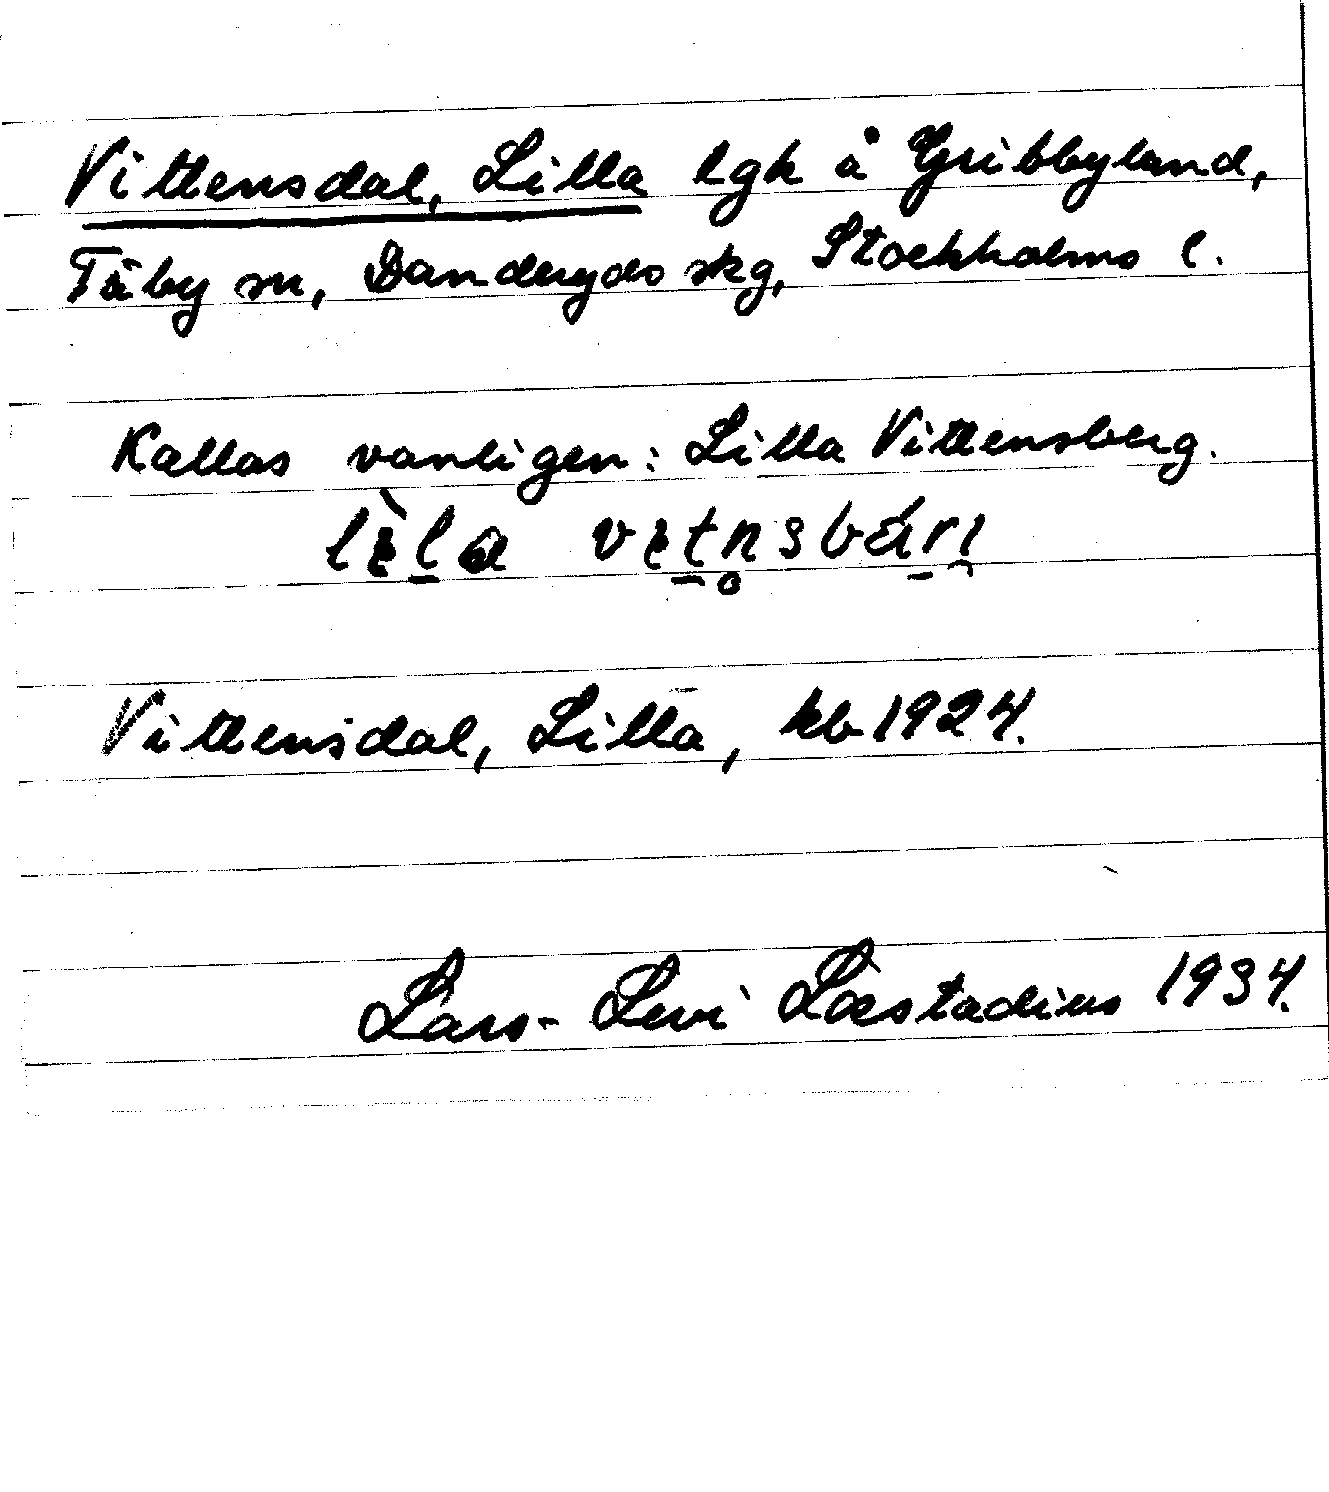 Vittensdal, Lilla lgh å Gribbyland,
Täby sn, Danderyds skg, Stockholms l.
Kallas vanligen: Lilla Vittensberg.
Vittensdal, Lilla, kb 1924.
Lars-Levi Læstadius 1934.